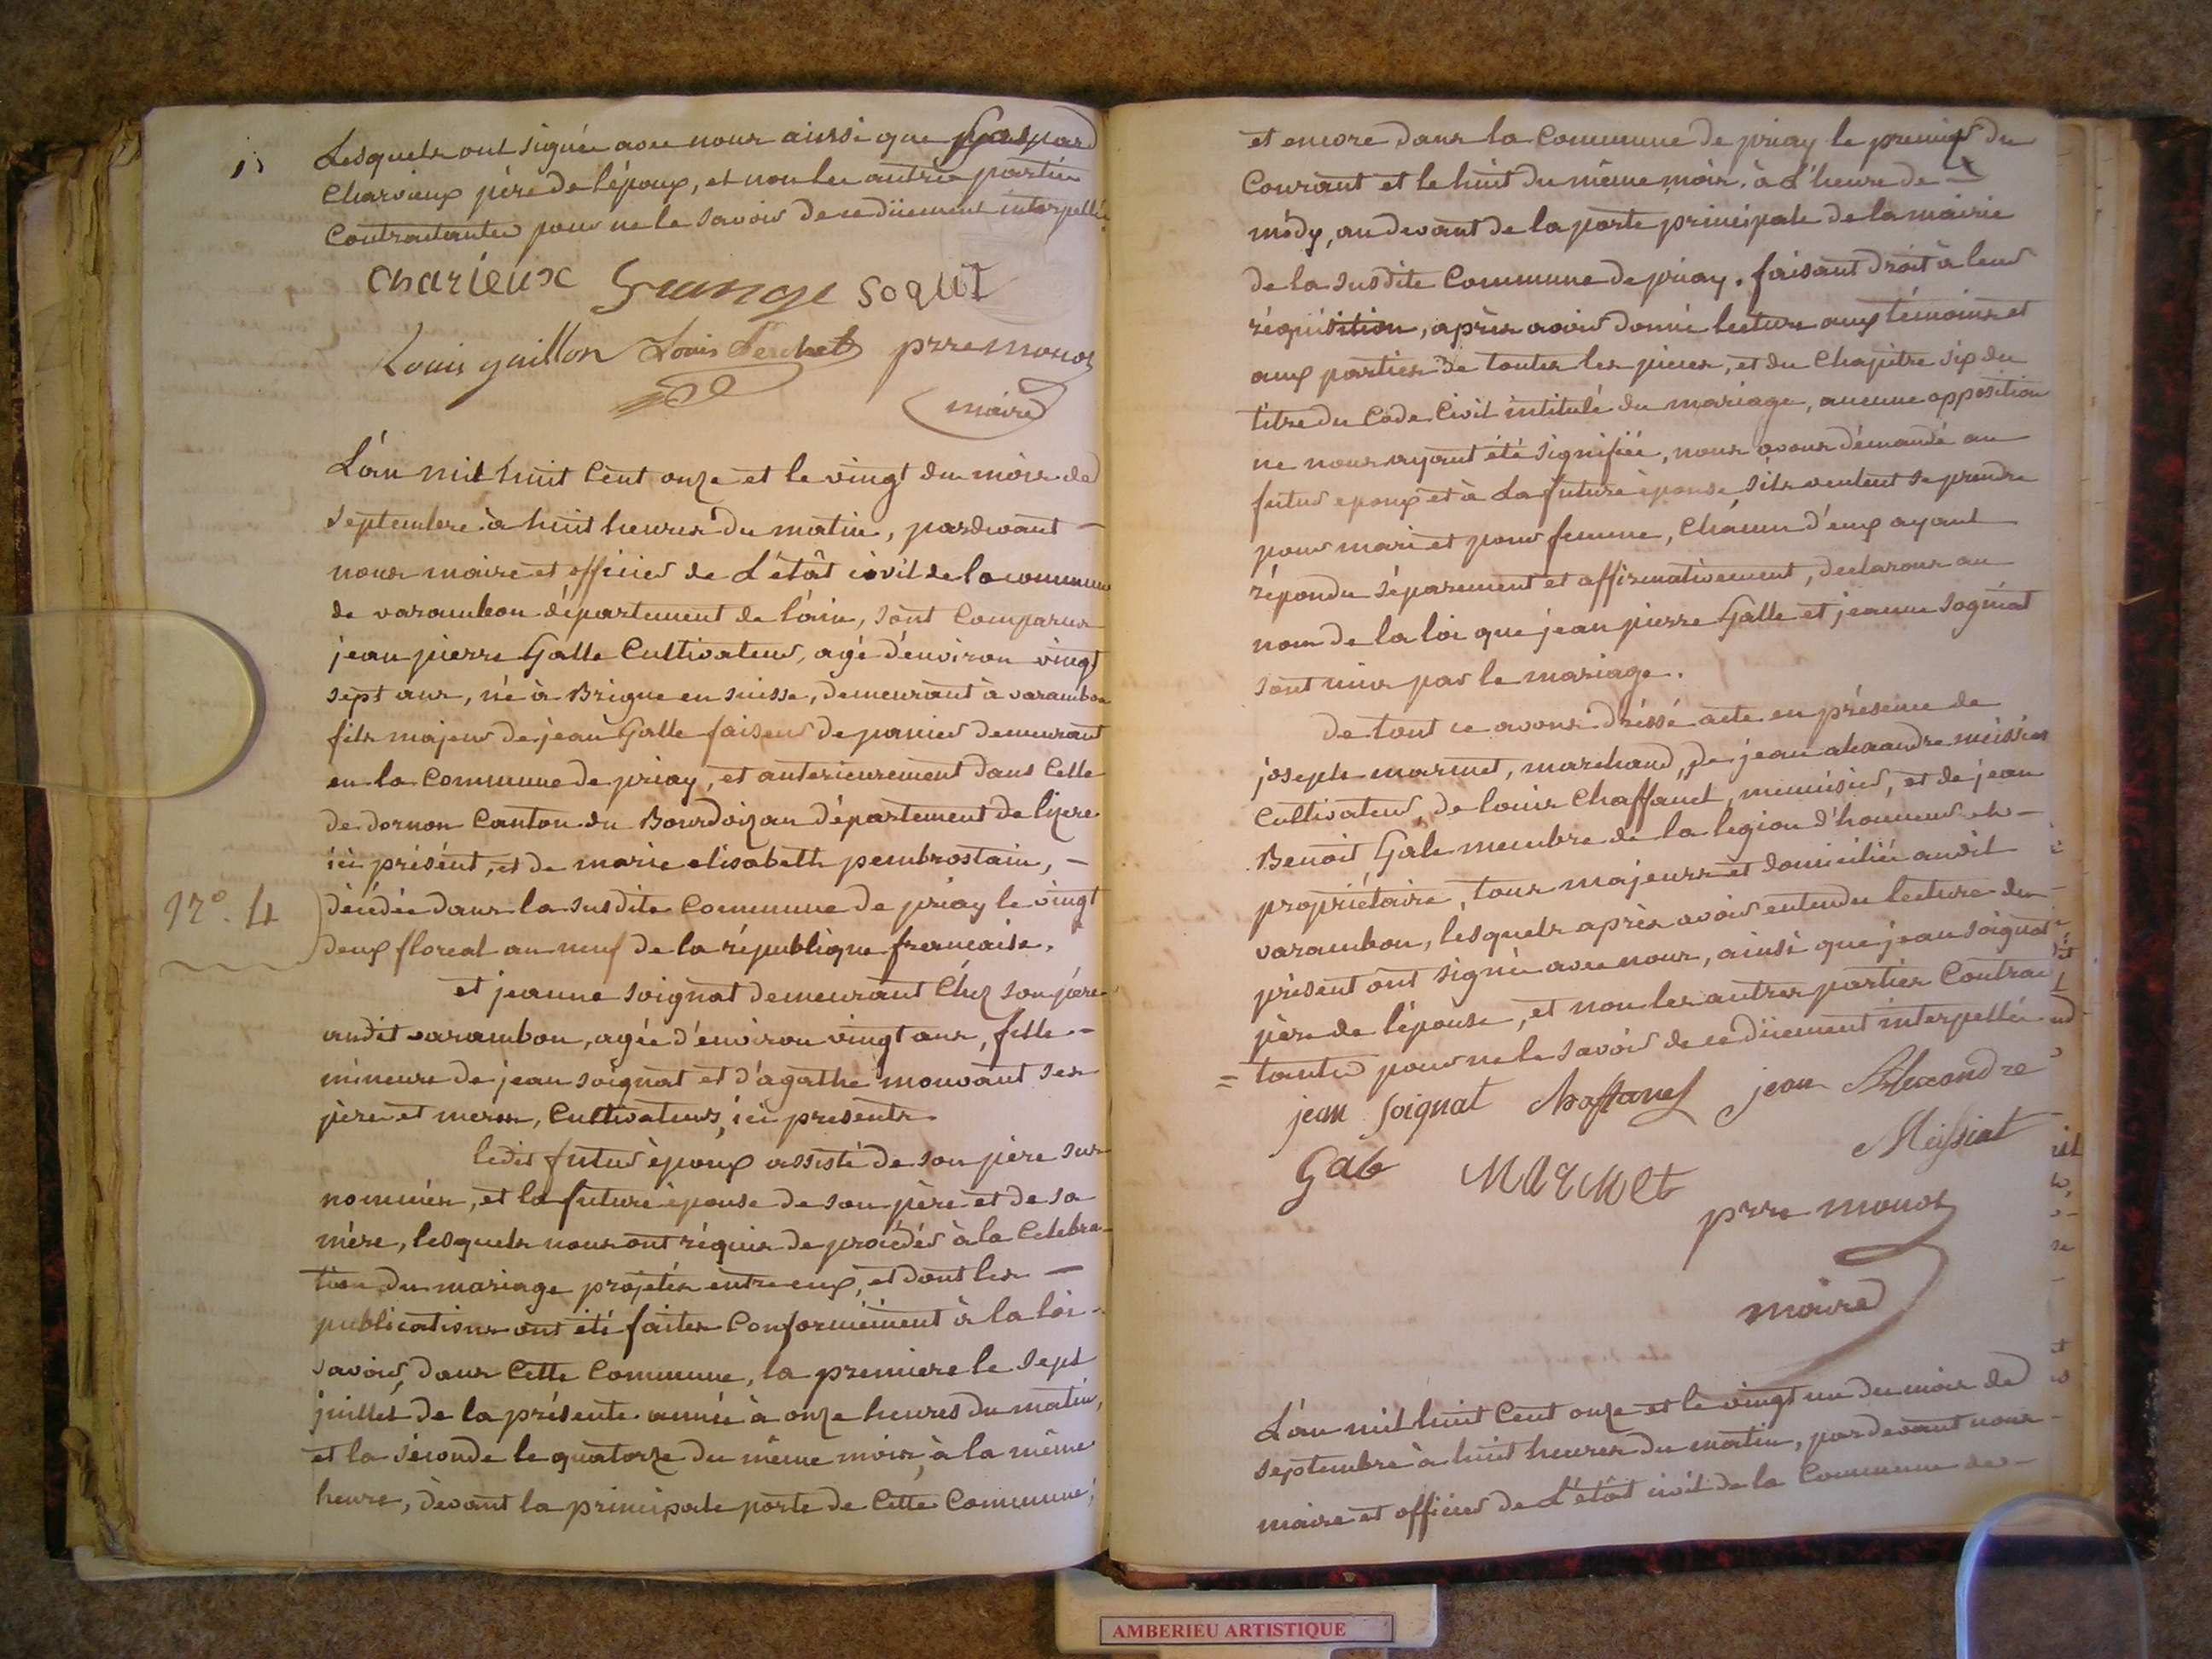 Lesquels ont signés avec nous ainsi que gaspard
Charvieux père de l'époux, et non les autres parties
Contractantes pour ne le savoir de ce dûement interpellés
charieux Grange soqut
Louis guillon Louis Perchet prre monod
maire
L'an mil huit Cent onze et le vingt du mois de
septembre à huit heures du matin, pardevant —
nous maire et officier de L'étât civil de la commune
de varambon département de l'ain, sont Comparus
jean pierre Galle Cultivateur, agé d'environ vingt
sept ans, né à Brigue en suisse, demeurant à varambon
fils majeur de jean Galle faiseur de panier demeurant
en la Commune de priay, et anterieurement dans Celle
de dornon Canton du Bourdoizan département de lizere
ici présent, et de marie elisabeth pembrostain, —
N°. 4
décédée dans la susdite Commune de priay le vingt
deux floreal an neuf de la république francaise.
et jeanne soignat demeurant Chez son père
audit varambon, agée d'environ vingt ans, fille —
mineure de jean soignat et d'agathe mouvant ses
père et mere, Cultivateurs, ici presents
ledit futur époux assisté de son père sus
nommés, et la future épouse de son père et de sa
mère, lesquels nous ont réquis de procéder à la Celebra-
tion du mariage projetés entre eux, et dont les —
publications ont été faites Conformément à la loi -
savoir, dans Cette Commune, la premiere le sept
juillet de la présente année à onze heures du matin,
et la séconde le quatorze du même mois, à la même
heure, dévant la principale porte de Cette Commune,
et encore dans la Commune de priay le premier du
Courant et le huit du même mois. à L'heure de —
midy, au devant de la porte principale de la mairie
de la susdite Commune de priay. faisant droit à leur
réquisition, après avoir donné lecture aux témoins et
aux parties de toutes les pieces, et du Chapitre six du
titre du Code Civil intitulé du mariage, aucune opposition
ne nous ayant été signifiée, nous avons démandé au
futur epoux et à La future épouse s'ils veulent se prendre
pour mari et pour femme, Chacun d'eux ayant
répondu séparement et affirmativement, declarons au
nom de la loi que jean pierre Galle et jeanne sogniat
sont unis par le mariage.
de tout ce avons dréssé acte en présence de
joseph marmet, marchand, de jean alexandre meissiat
Cultivateur, de louis Chaffanel, menuisier, et de jean
Benoit Gale membre de la legion d'honneur et —
propriétaire, tous majeurs et domiciliés audit
varambon, lesquels après avoir entendu lecture du
présent ont signés avec nous, ainsi que jean soignat
père de l'épouse, et non les autres parties Contrac
= tantes pour ne le savoir de ce dûement interpellés
jean soignat Chaffanel jean Alexandre
Meissiat
Gale MARMet
prre monod
maire
L'an mil huit Cent onze et le vingt un du mois de
septembre à huit heures du matin, pardevant nous
maire et officier de L'étât civil de la Commune de —
AMBERIEU ARTISTIQUE